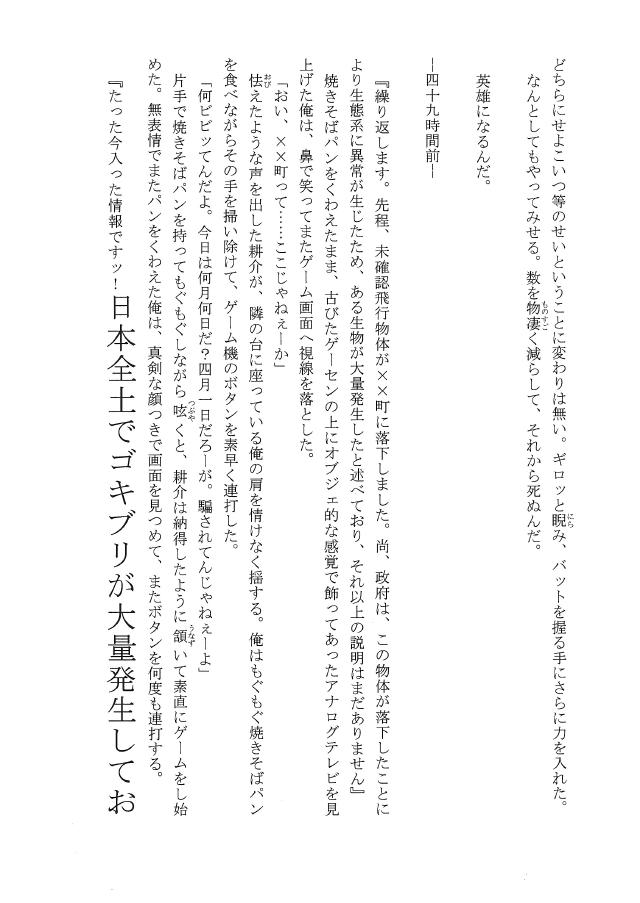 どちらにせよこいつ等のせいということに変わりは無い。ギロッと睨み、バットを握る手にさらに力を入れた。
なんとしてもやってみせる。数を物凄く減らして、それから死ぬんだ。
英雄になるんだ。
―四十九時間前―
『繰り返します。先程、未確認飛行物体が××町に落下しました。尚、政府は、この物体が落下したことに
より生態系に異常が生じたため、ある生物が大量発生したと述べており、それ以上の説明はまだありません』
焼きそばパンをくわえたまま、古びたゲーセンの上にオブジェ的な感覚で飾ってあったアナログテレビを見
上げた俺は、鼻で笑ってまたゲーム画面へ視線を落とした。
「おい、××町って……ここじゃねぇーか」
怯えたような声を出した耕介が、隣の台に座っている俺の肩を情けなく揺する。俺はもぐもぐ焼きそばパン
を食べながらその手を掃い除けて、ゲーム機のボタンを素早く連打した。
「何ビビッてんだよ。今日は何月何日だ？四月一日だろーが。騙されてんじゃねぇーよ」
片手で焼きそばパンを持ってもぐもぐしながら呟くと、耕介は納得したように頷いて素直にゲームをし始
めた。無表情でまたパンをくわえた俺は、真剣な顔つきで画面を見つめて、またボタンを何度も連打する。
『たった今入った情報ですッ！日本全土でゴキブリが大量発生してお